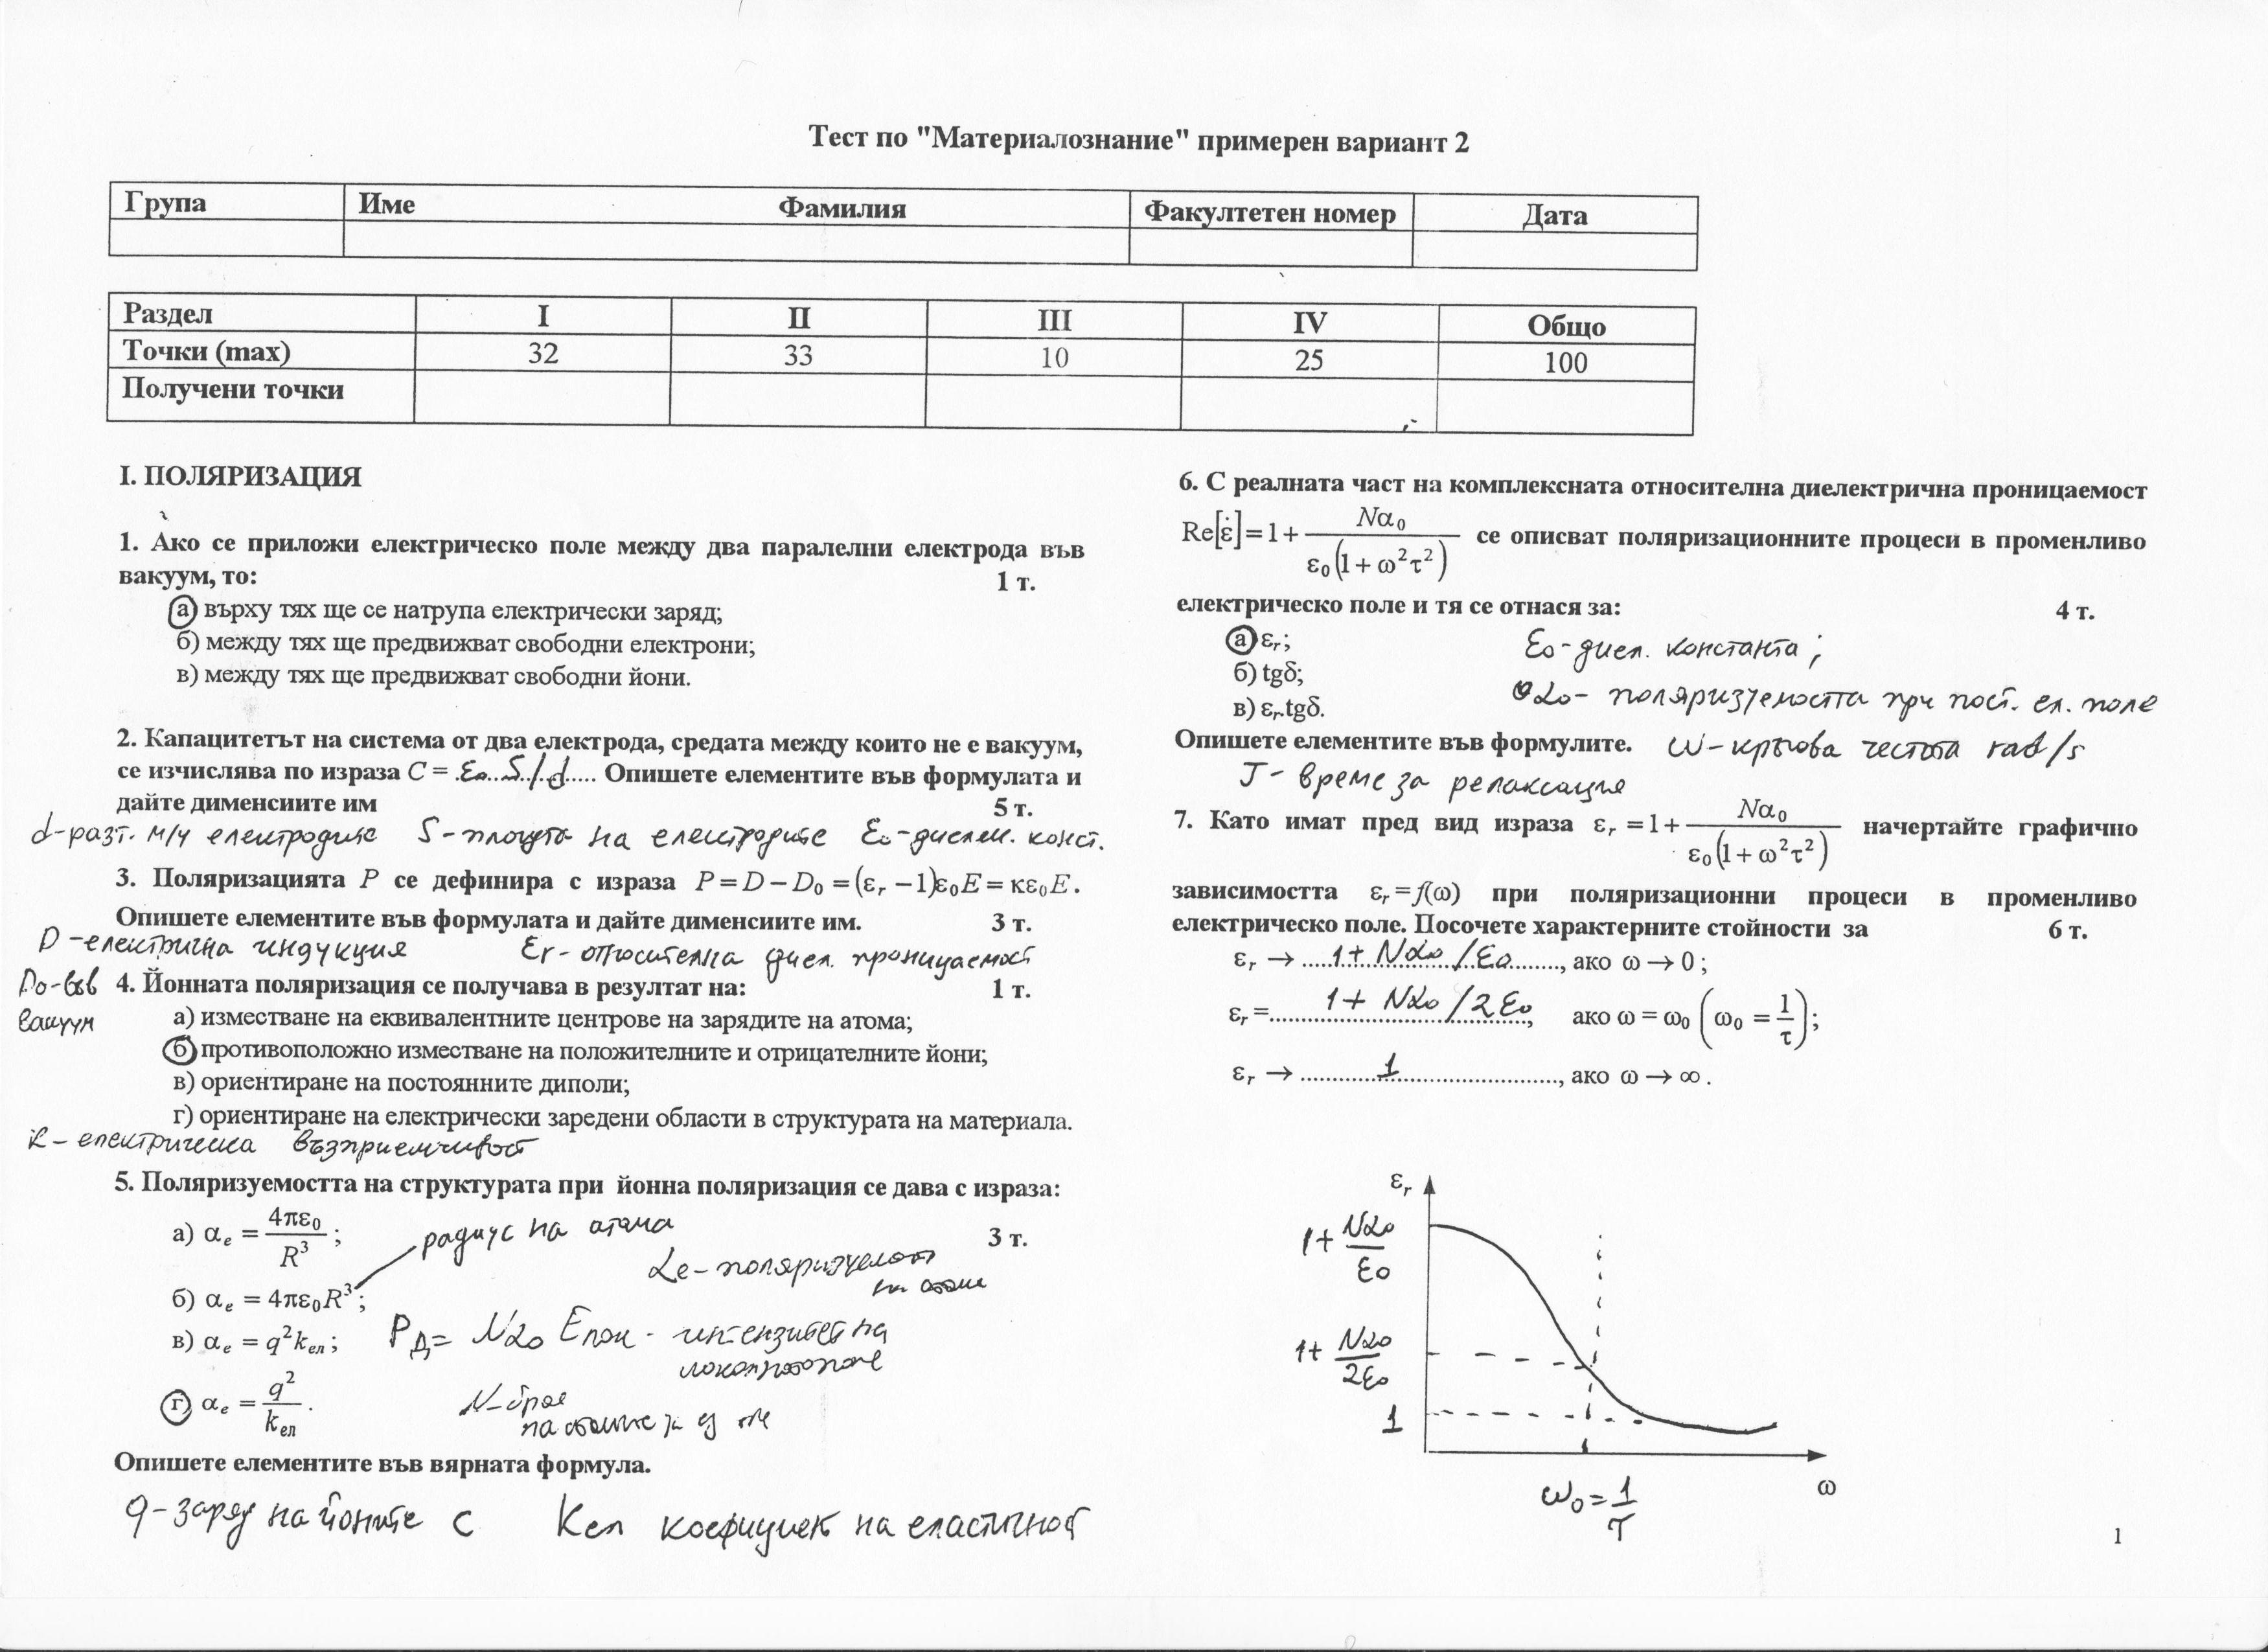 Тест по "Материалознание" примерен вариант 2
Група Име Фамилия Факултетен номер Дата
Раздел I II III IV Общо
Точки (max) 32 33 10 25 100
Получени точки
I. ПОЛЯРИЗАЦИЯ
1. Ако се приложи електрическо поле между два паралелни електрода във
вакуум, то: 1 т.
а) върху тях ще се натрупа електрически заряд;
б) между тях ще предвижват свободни електрони;
в) между тях ще предвижват свободни йони.
2. Капацитетът на система от два електрода, средата между които не е вакуум,
се изчислява по израза C = .ε₀..S./.d..... Опишете елементите във формулата и
дайте дименсиите им 5 т.
d-разт. м/у електродите S-площта на електродите ε₀-диелек. конст.
3. Поляризацията P се дефинира с израза P = D – D₀ = (εr – 1)ε₀E = κε₀E.
Опишете елементите във формулата и дайте дименсиите им. 3 т.
D-електрична индукция εr- относителна диел. проницаемост
D₀-във
вакуум
4. Йонната поляризация се получава в резултат на: 1 т.
а) изместване на еквивалентните центрове на зарядите на атома;
б) противоположно изместване на положителните и отрицателните йони;
в) ориентиране на постоянните диполи;
г) ориентиране на електрически заредени области в структурата на материала.
κ- електрическа възприемчивост
5. Поляризуемостта на структурата при йонна поляризация се дава с израза:
а) αe = 4πε₀/R³; 3 т.
радиус на атома
αe-поляризуемост
на атома
б) αe = 4πε₀R³;
в) αe = q²kел;
Pд= Nα₀ Eлок - интензитет на
локалното поле
г) αe = q²/kел.
N-броя
на атомите
Опишете елементите във вярната формула.
q-заряд на йоните C Kел коефициент на еластичност
6. С реалната част на комплексната относителна диелектрична проницаемост
Re[ε̇] = 1 + Nα₀/ε₀(1 + ω²τ²) се описват поляризационните процеси в променливо
електрическо поле и тя се отнася за: 4 т.
а) εr;
б) tgδ;
в) εr.tgδ.
ε₀-диел. константа;
α₀- поляризуемостта при пост. ел. поле
Опишете елементите във формулите. ω-кръгова честота rad/s
τ- време за релаксация
7. Като имат пред вид израза εr = 1 + Nα₀/ε₀(1 + ω²τ²) начертайте графично
зависимостта εr = f(ω) при поляризационни процеси в променливо
електрическо поле. Посочете характерните стойности за 6 т.
εr → ....1+ Nα₀ /ε₀........, ако ω → 0;
εr =.......1+ Nα₀ /2ε₀......., ако ω = ω₀ (ω₀ = 1/τ);
εr → ............1......................, ако ω → ∞.
εr
1+ Nα₀/ε₀
1+ Nα₀/2ε₀
1
ω
ω₀ = 1/τ
1